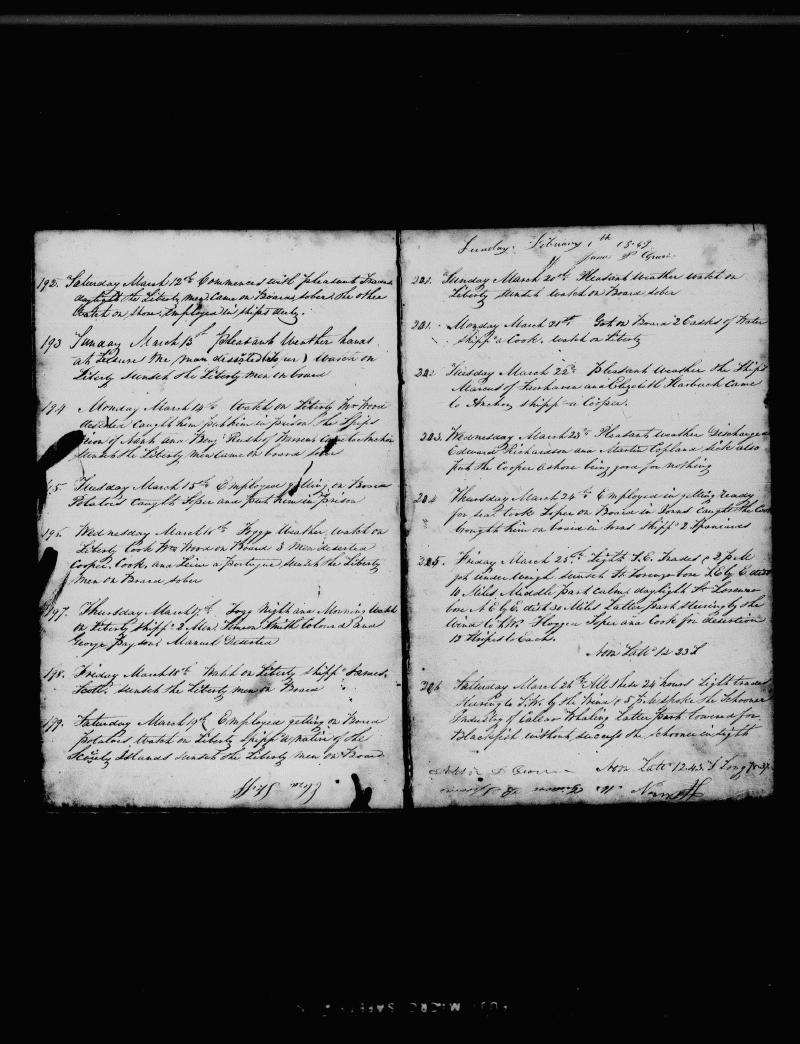 192. Saturday March 12th Commences with Pleasant Trades
daylight the Liberty men came on Board sober, the other
watch on shore, Employed in ships duty.
193 Sunday March 13th Pleasant Weather hands
at Leisure one man deserted watch on
Liberty sunset the Liberty men on board
194 Monday March 14th Watch on Liberty Wm Wood
deserted Caught him put him in prison The Ships
of and Benj Rush of Warren came to Anchor
sunset the Liberty men came on board sober
195 Tuesday March 15th Employed getting on Board
Potatoes caught Soper and put him in prison
196. Wednesday March 16th Foggy Weather, watch on
Liberty Took Wm Wood on Board 3 Men deserted
Cooper, Cook, and a Portugue sunset the Liberty
Men on Board sober
197. Thursday March 17th Fogg Night and Morning Watch
on Liberty shipp 2 Men Smith Coloured and
George Bryson Manuel Deserted
198. Friday March 18th Watch on Liberty shipp James
sunset the Liberty men on Board
199. Saturday March 19th Employed getting on Board
Potatoes Watch on Liberty Shipp a native of the
Islands sunset the Liberty men on Board
Sunday. February 1th 1847
Sunday March 20th Pleasant weather watch on
Liberty sunset watch on Board sober
201. Monday March 21st Got on Board 2 Casks of Water
shipp a Cook, watch on Liberty
202 Tuesday March 22d Pleasant weather the Ships
Marcus of Fairhaven and Elizabeth Harbuch Came
to Anchor shipp a Cooper.
203. Wednesday March 23d Pleasant weather Discharged
Edward Richardson and Martin Copland sick also
put the Cooper ashore being good for nothing
204 Thursday March 24th Employed in getting ready
for sea took Soper on Board in Irons caught the Cook
brought him on board in Irons shipp 2 Spaniards
205. Friday March 25th Light S.E. Trades 2 PM
got under weigh sunset bore E by E dist
10 Miles Middle part calm, daylight
bore N E by E dist 30 Miles Latter part steering by the
wind to SW. Flogged Soper and Cook for desertion
12 stripes to Each.
Noon Latt 12.23 S
206 Saturday March 26th All these 24 hours Light trades
steering to S.W. by the Wind 5 PM spoke the Schooner
Industry of Whaling Latter part lowered for
Blackfish without success the schooner in sight
Noon Latt 12.43 S Long